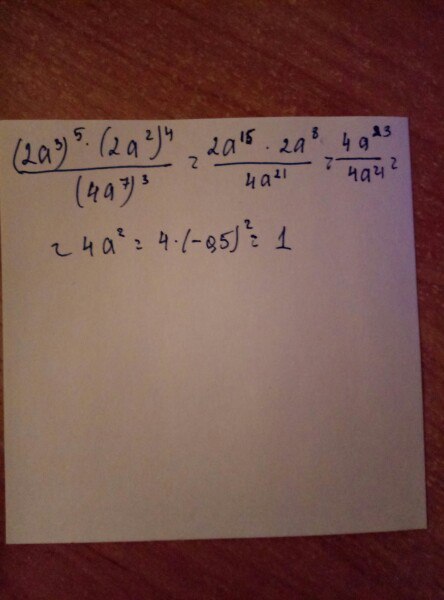 (2a³)⁵·(2a²)⁴/(4a⁷)³ = 2a¹⁵·2a⁸/4a²¹ = 4a²³/4a²¹ =
= 4a² = 4·(-0,5)² = 1